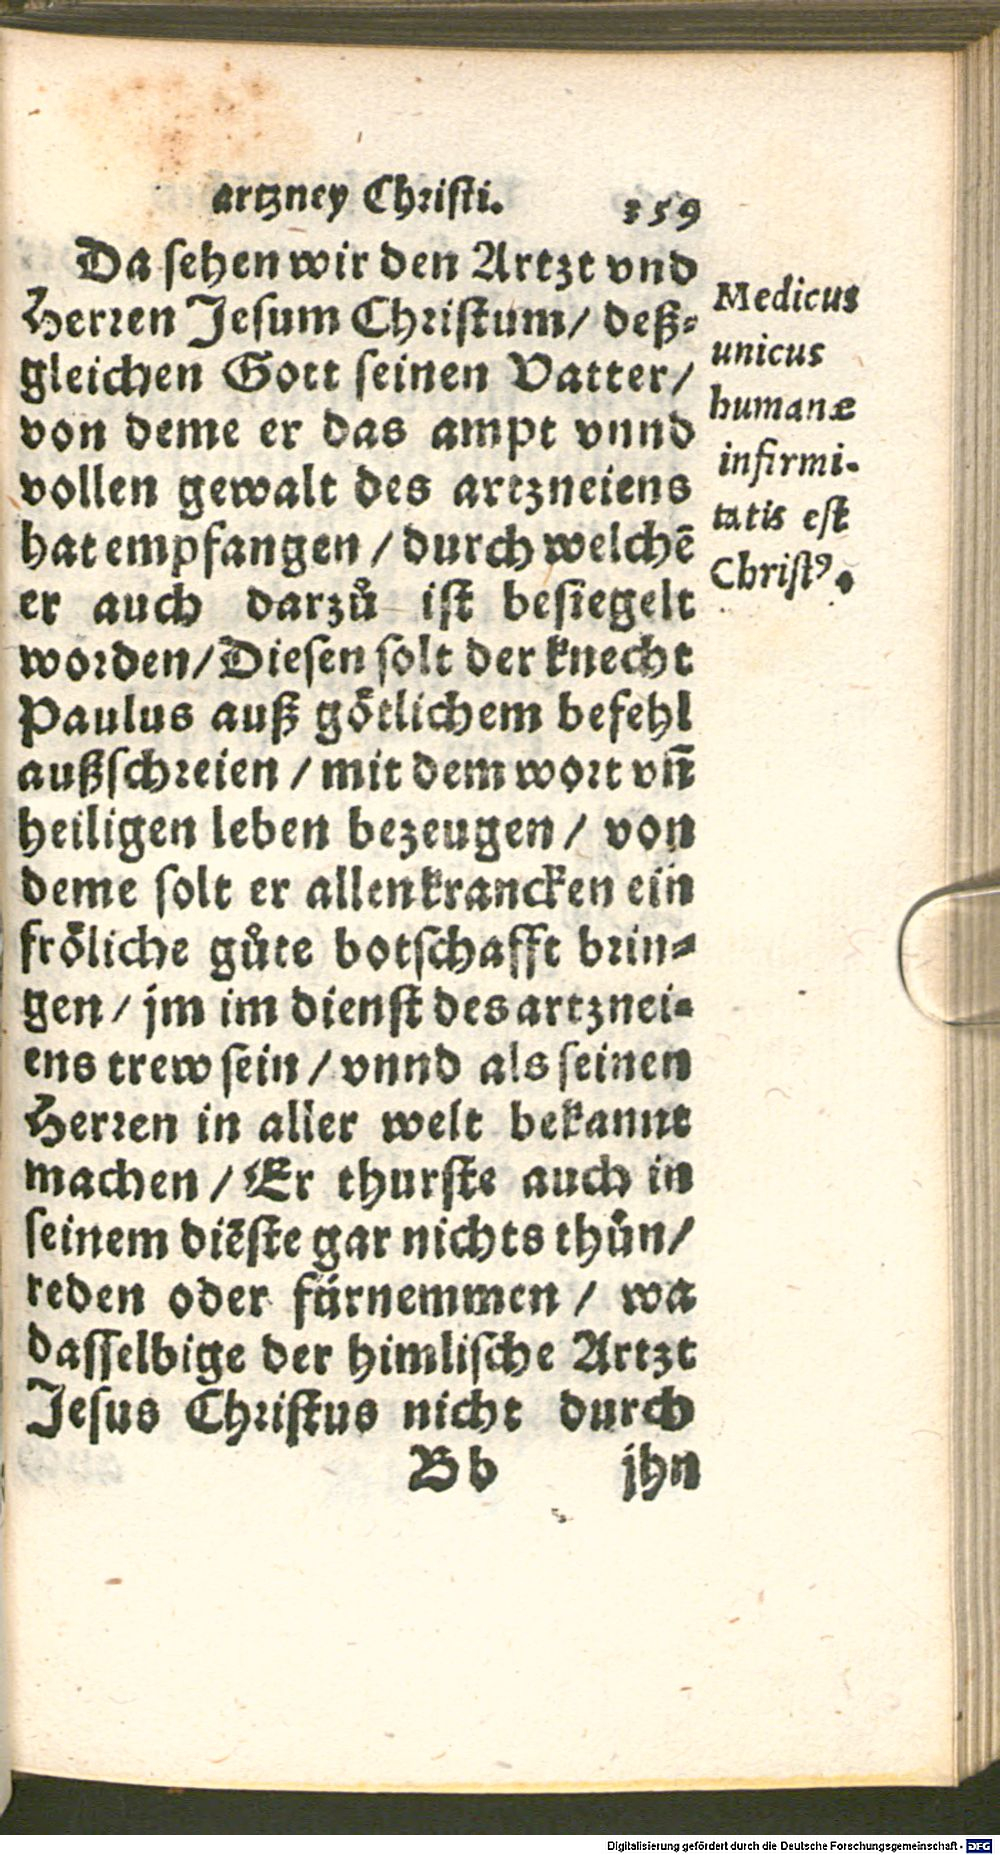 artzney Christi. 159
Da sehen wir den Artzt vnd
Herren Jesum Christum/ deß-
gleichen Gott seinen Vatter/
von deme er das ampt vnnd
vollen gewalt des artzneiens
hat empfangen / durch welchē
er auch darzů ist besiegelt
worden/ Diesen solt der knecht
Paulus auß götlichem befehl
außschreien / mit dem wort vñ
heiligen leben bezeugen / von
deme solt er allen krancken ein
fröliche gůte botschafft brin-
gen / jm im dienst des artznei-
ens trew sein / vnnd als seinen
Herren in aller welt bekannt
machen / Er thurste auch in
seinem diēste gar nichts thůn/
reden oder fürnemmen / wa
dasselbige der himlische Artzt
Jesus Christus nicht durch
Bb jhn
Medicus
unicus
humanæ
infirmi-
tatis est
Christꝰ.
Digitalisierung gefördert durch die Deutsche Forschungsgemeinschaft - DFG